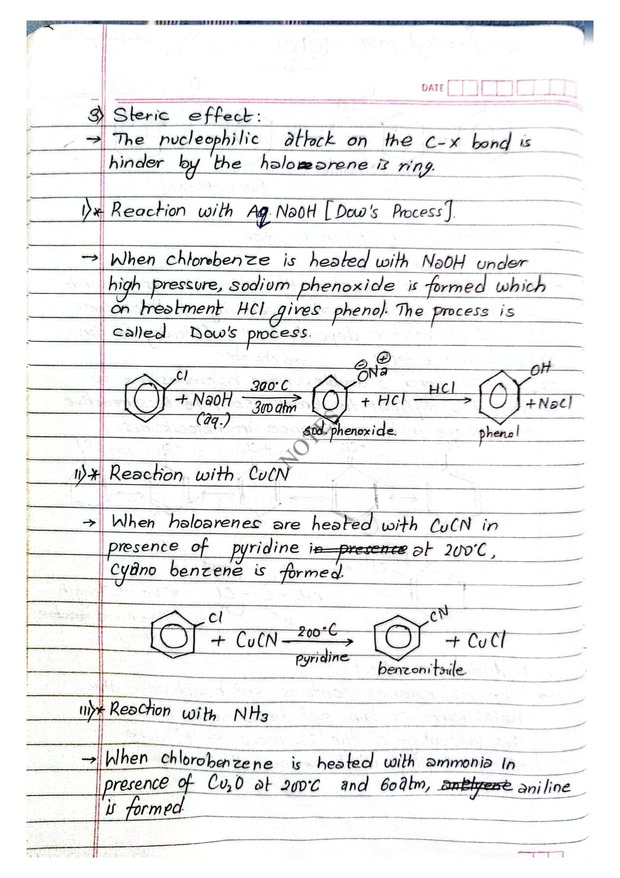 DATE
3) Steric effect:
→ The nucleophilic attack on the C-X bond is
hinder by the haloarene is ring.
i)* Reaction with Aq. NaOH [Dow's Process].
→ When chlorobenze is heated with NaOH under
high pressure, sodium phenoxide is formed which
on treatment HCl gives phenol. The process is
called Dow's process.
Cl ⊖ ⊕ ONa OH
+ NaOH 300°C + HCl HCl → + NaCl
(aq.) 300 atm
sod. phenoxide. phenol
NOTES
ii)* Reaction with CuCN
→ When haloarenes are heated with CuCN in
presence of pyridine in presence at 200°C,
cyano benzene is formed.
Cl CN
+ CuCN 200°C → + CuCl
pyridine benzonitrile
iii)* Reaction with NH3
→ When chlorobenzene is heated with ammonia in
presence of Cu2O at 200°C and 60 atm, aniline
is formed.